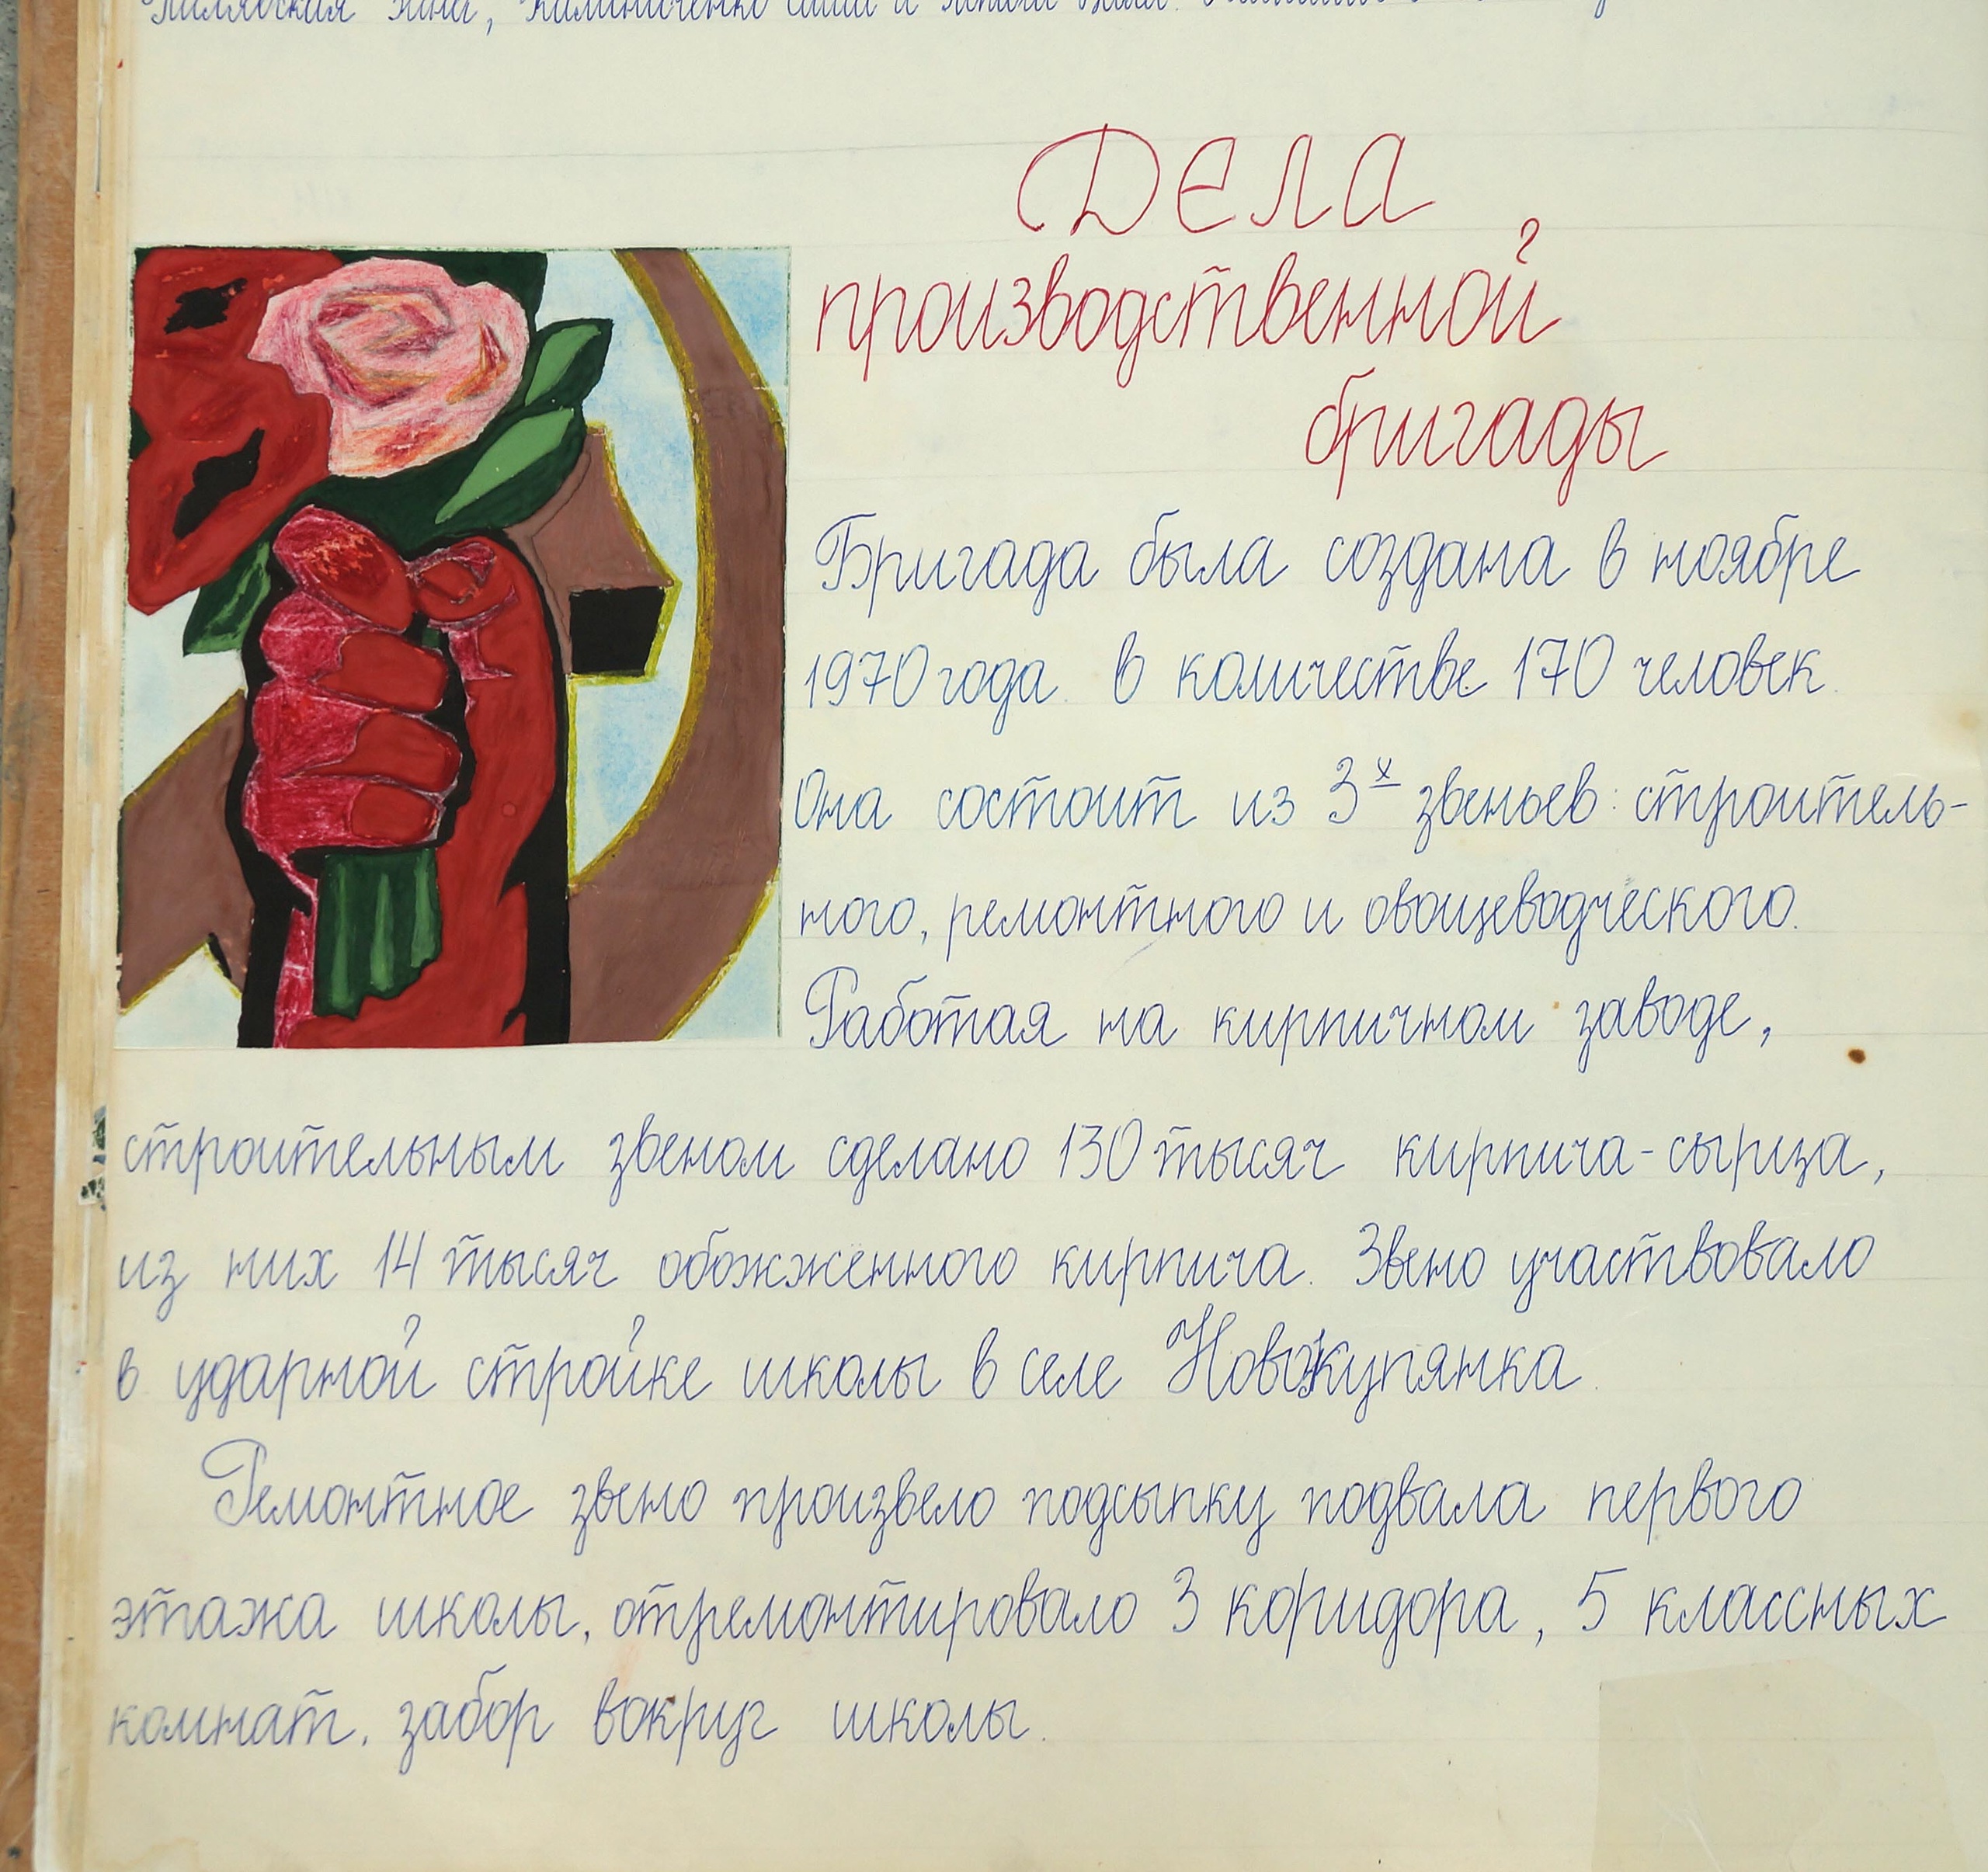 Дела
производственной
бригады
Бригада была создана в ноябре
1970 года в количестве 170 человек.
Она состоит из 3х звеньев: строитель-
ного, ремонтного и овощеводческого.
Работая на кирпичном заводе,
строительным звеном сделано 130 тысяч кирпича-сырца,
из них 14 тысяч обожженного кирпича. Звено участвовало
в ударной стройке школы в селе Новокупянка.
Ремонтное звено произвело подсыпку подвала первого
этажа школы, отремонтировало 3 коридора, 5 классных
комнат, забор вокруг школы.